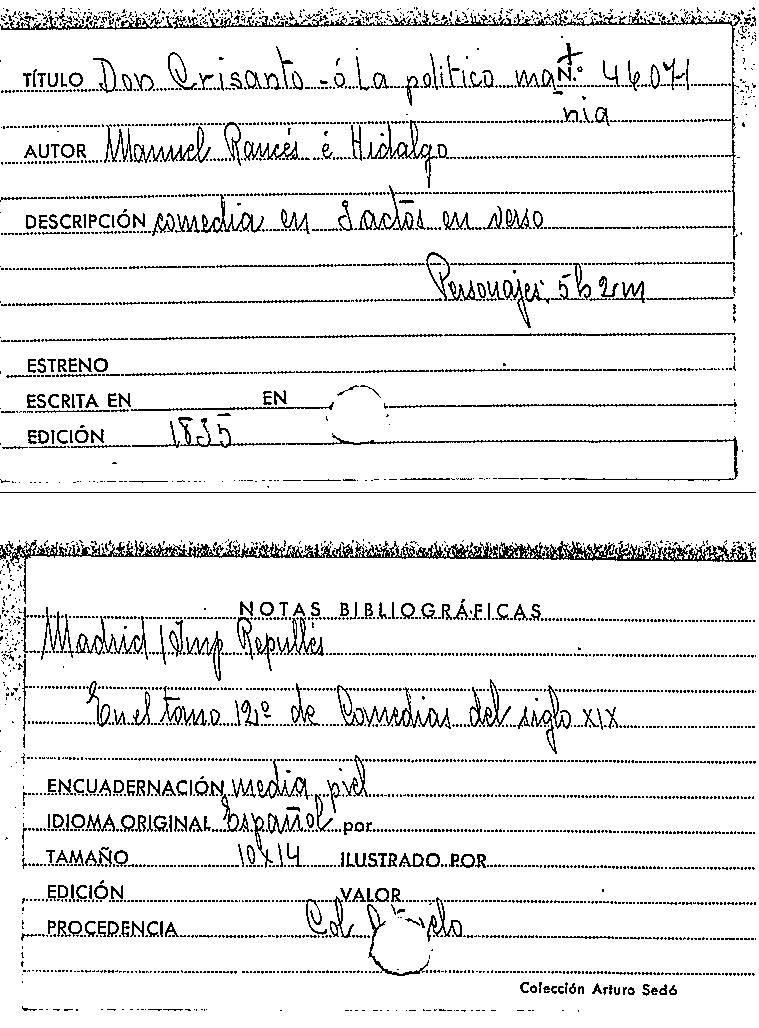 TÍTULO Don Crisanto - ó La politico ma N.º 46071
nia
AUTOR Manuel Rancés é Hidalgo
DESCRIPCIÓN comedia en 3 actos en verso
Personajes: 5h 2m
ESTRENO
ESCRITA EN EN
EDICIÓN 1835
NOTAS BIBLIOGRÁFICAS
Madrid / Imp Repullés
En el tomo 12º de Comedias del siglo XIX
ENCUADERNACIÓN media piel
IDIOMA ORIGINAL Español por
TAMAÑO 10x14 ILUSTRADO POR
EDICIÓN VALOR
PROCEDENCIA Col
Colección Arturo Sedó